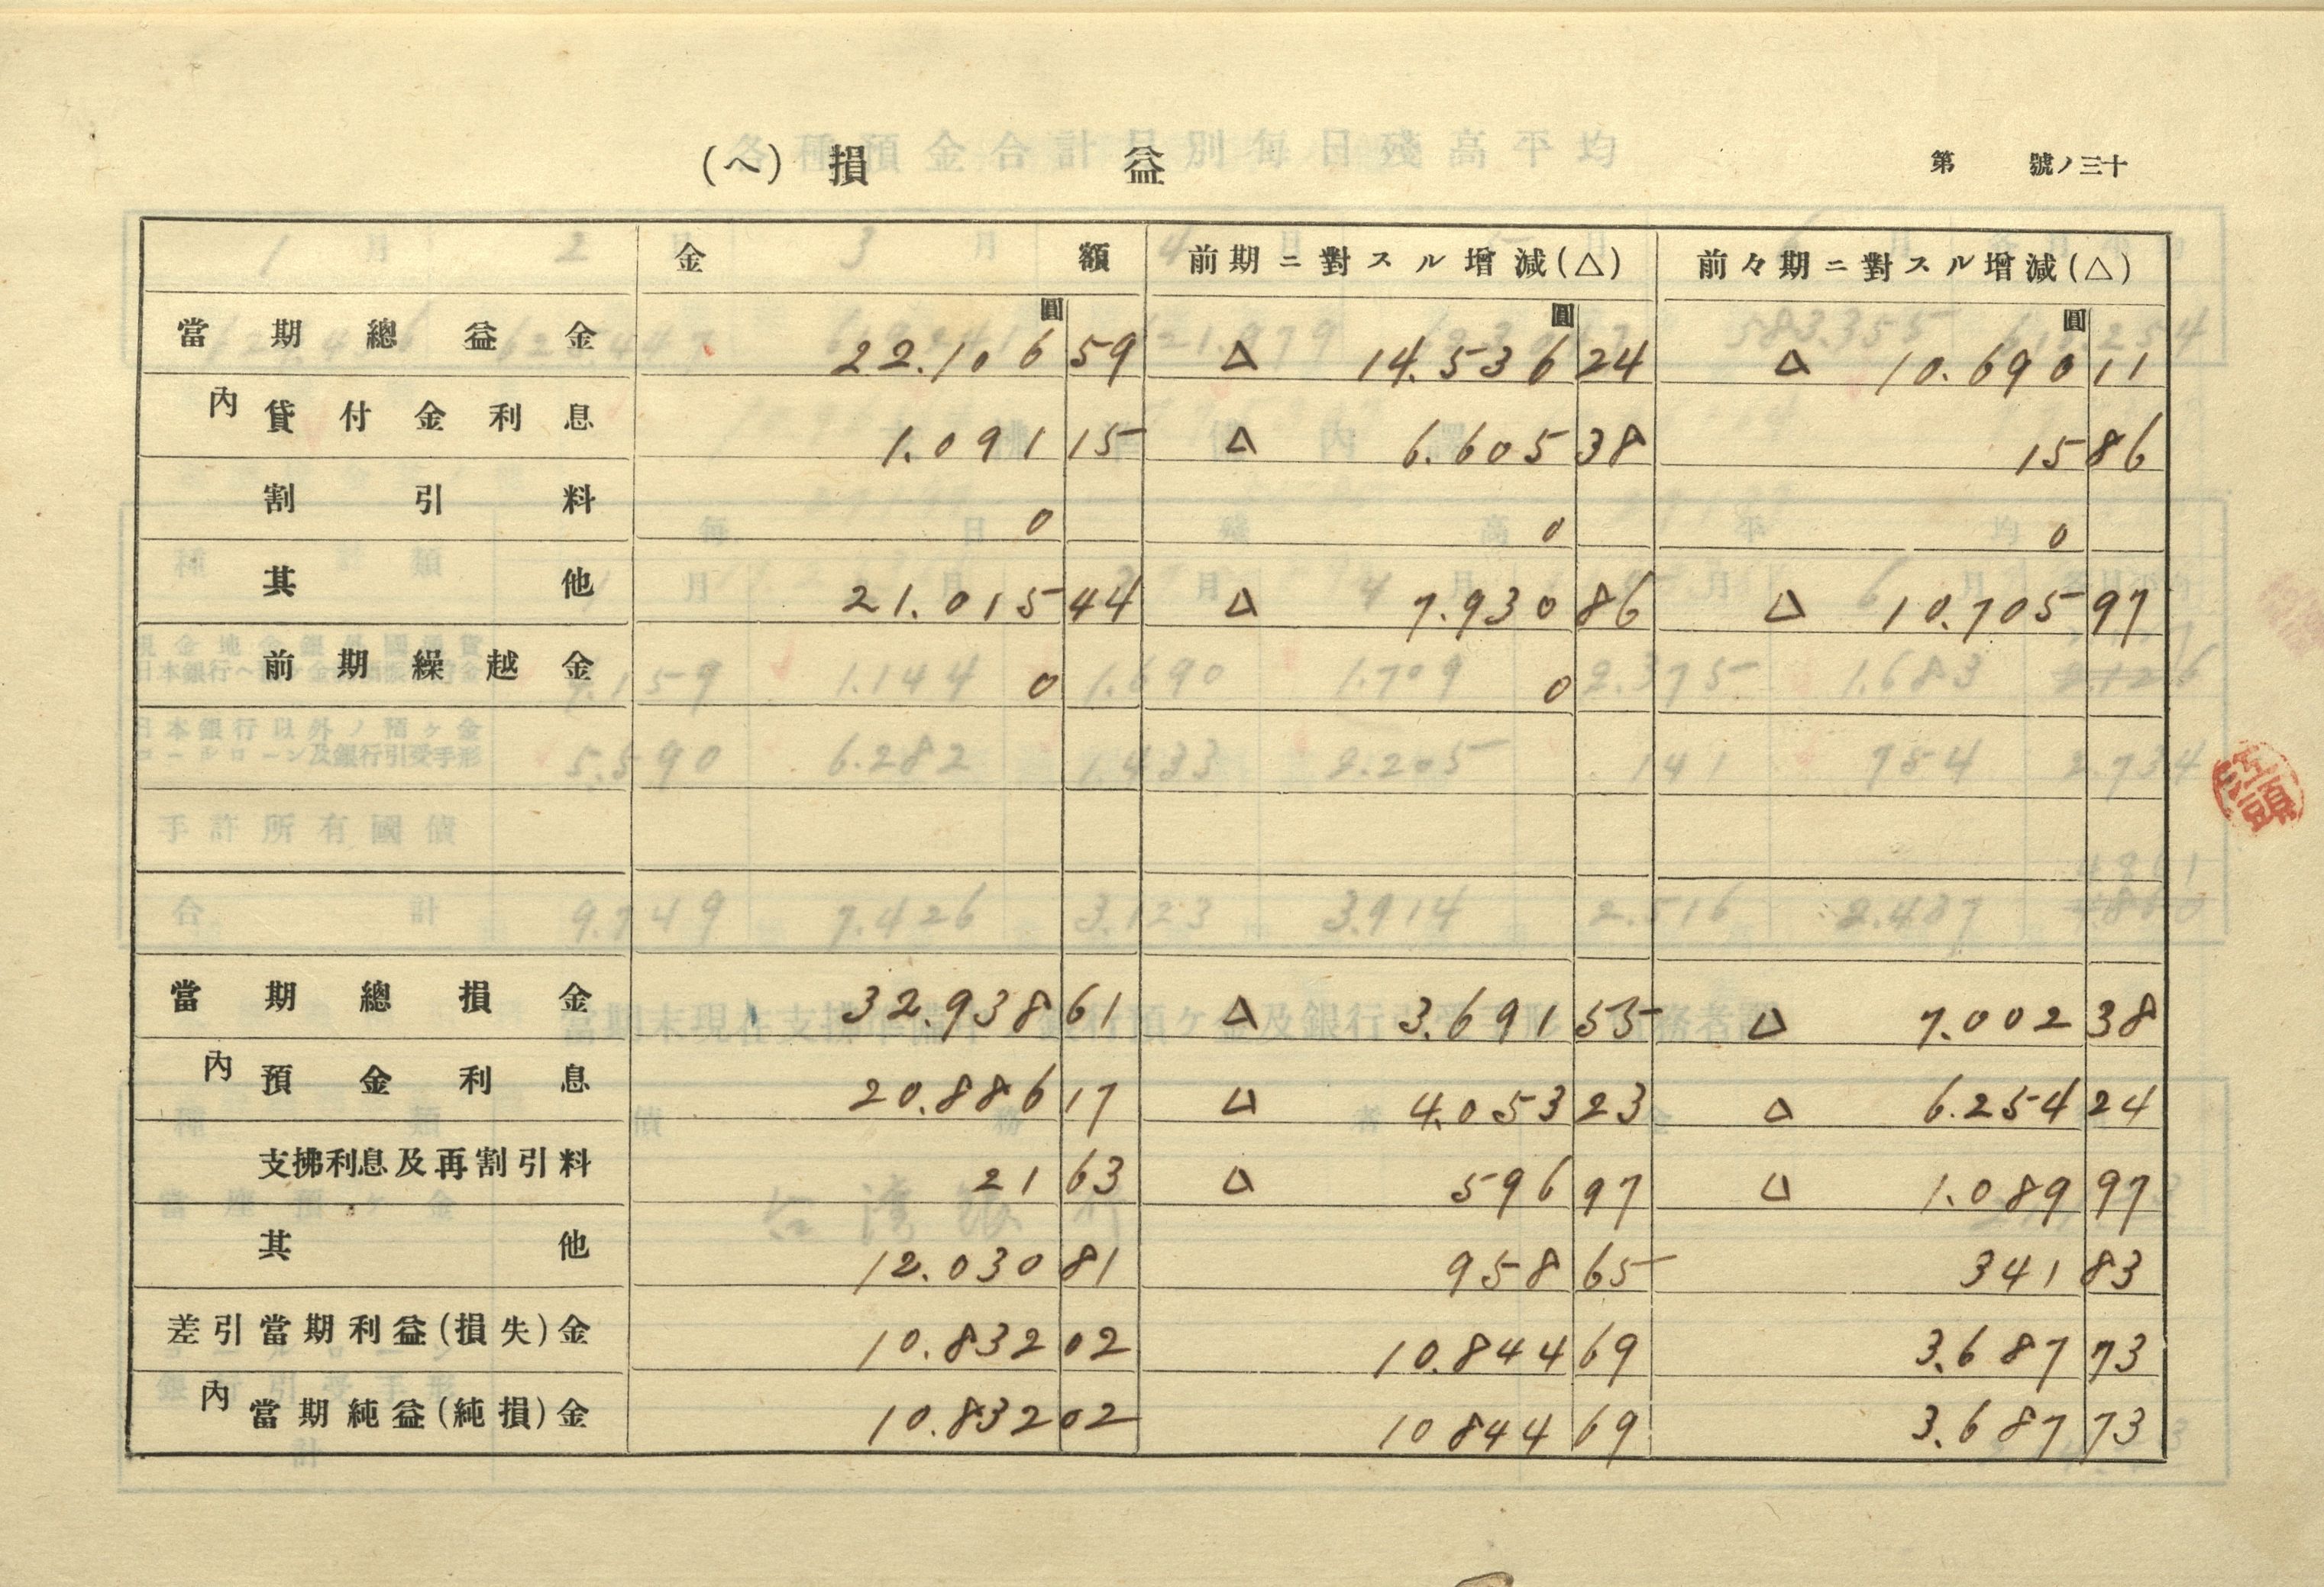 (ヘ) 損 益
第 號ノ三十
金 額 前期ニ對スル增減(△) 前々期ニ對スル增減(△)
圓 圓 圓
當期總益金 22.106 59 △ 14.536 24 △ 10.690 11
內 貸付金利息 1.091 15 △ 6.605 38 15 86
割引料 0 0 0
其他 21.015 44 △ 7.930 86 △ 10.705 97
前期繰越金 0 0
當期總損金 32.938 61 △ 3.691 55 △ 7.002 38
內 預金利息 20.886 17 △ 4.053 23 △ 6.254 24
支拂利息及再割引料 21 63 △ 596 97 △ 1.089 97
其他 12.030 81 958 65 341 83
差引當期利益(損失)金 10.832 02 10.844 69 3.687 73
內 當期純益(純損)金 10.832 02 10844 69 3.687 73